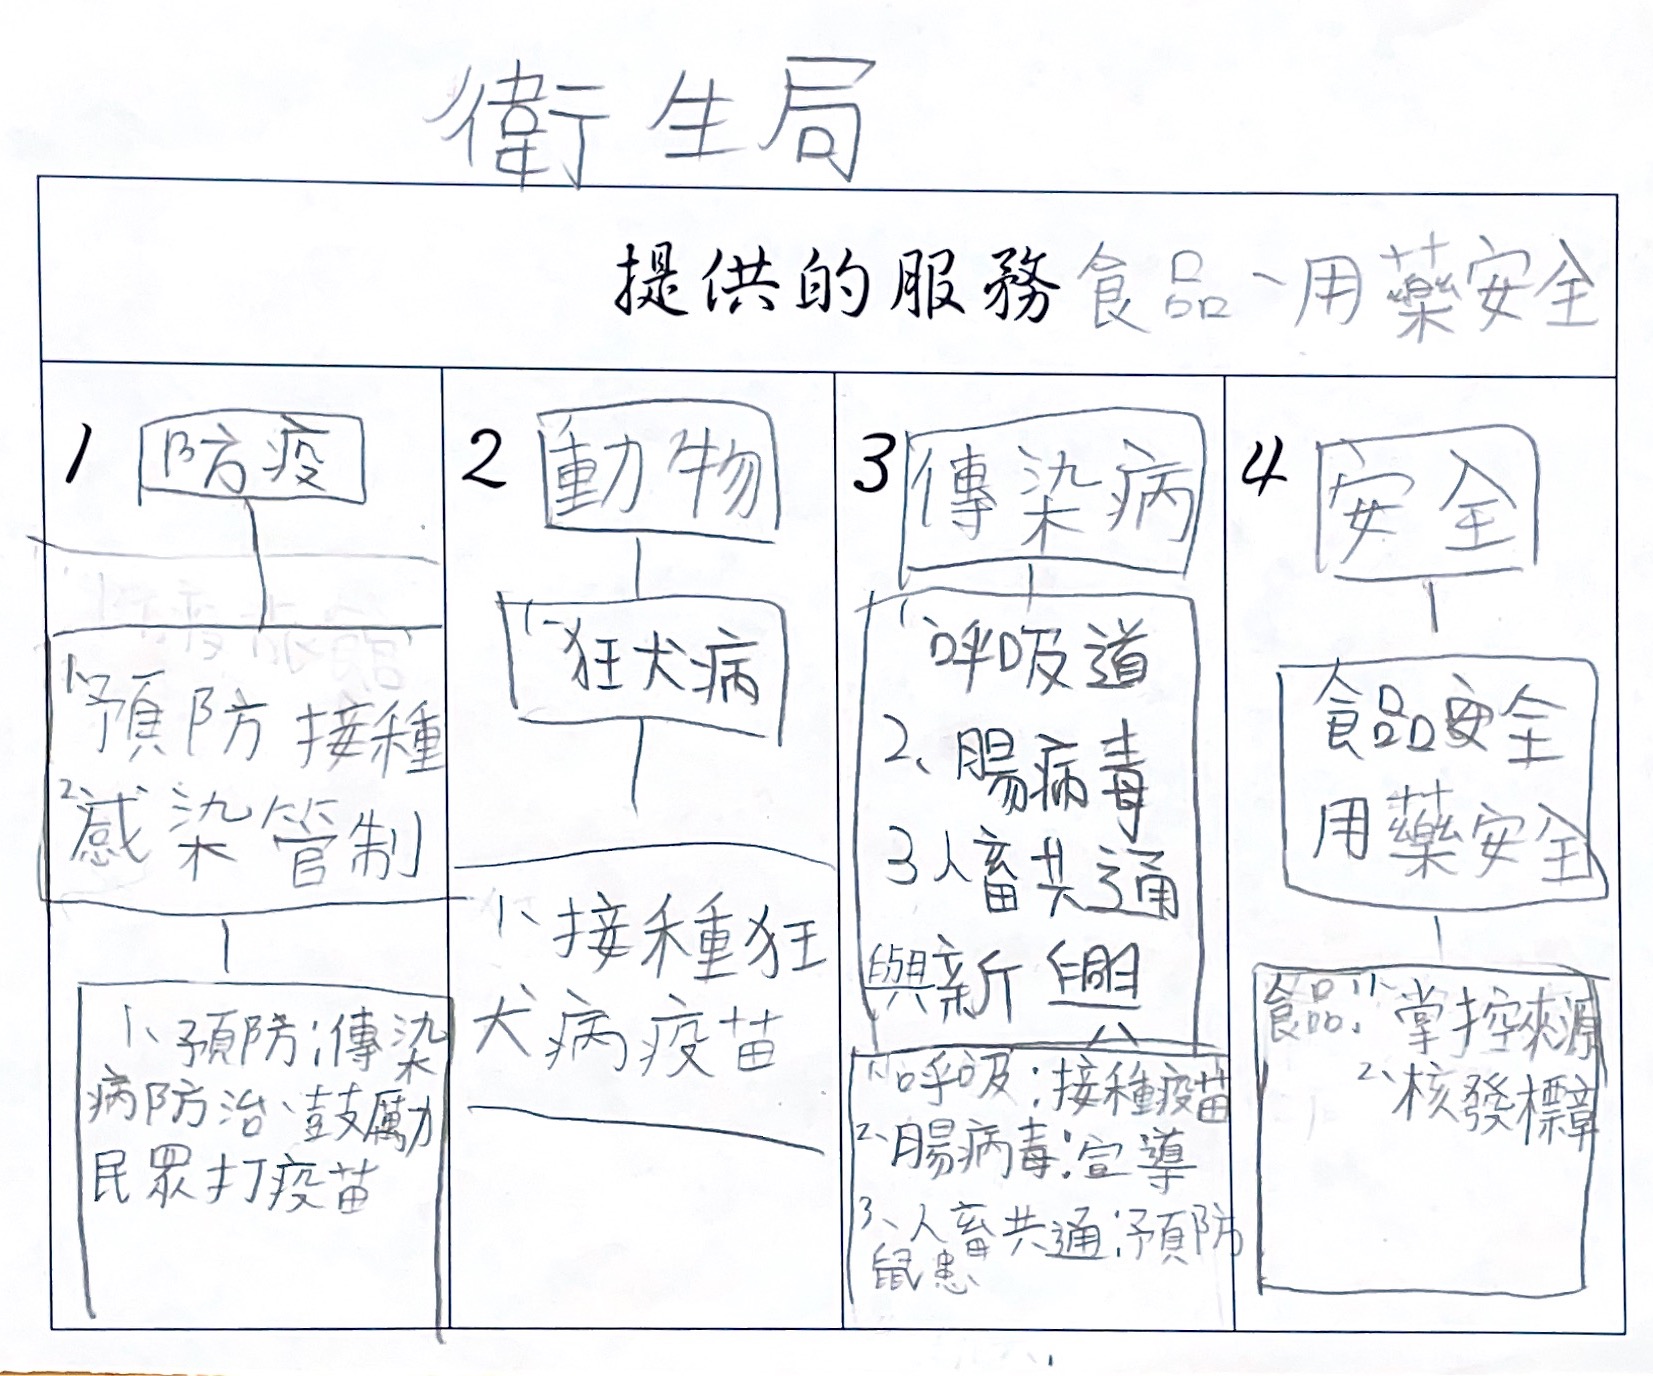 衛生局
提供的服務 食品、用藥安全
1 防疫
1.預防接種
2.感染管制
1、預防:傳染
病防治、鼓勵
民眾打疫苗
2 動物
1、狂犬病
1、接種狂
犬病疫苗
3 傳染病
1、呼吸道
2、腸病毒
3人畜共通
與新興
1、呼吸:接種疫苗
2、腸病毒:宣導
3、人畜共通:預防
鼠患
4 安全
食品安全
用藥安全
食品:1、掌控來源
2、核發標章